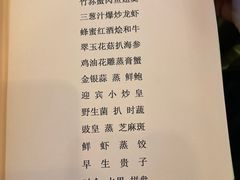 三葱汁爆炒龙虾
蜂蜜红酒烩和牛
翠玉花菇扒海参
鸡油花雕蒸膏蟹
金银蒜 蒸 鲜鲍
迎 宾 小 炒 皇
野生菌 扒 时蔬
豉皇 蒸 芝麻斑
鲜 虾 蒸 饺
早 生 贵 子